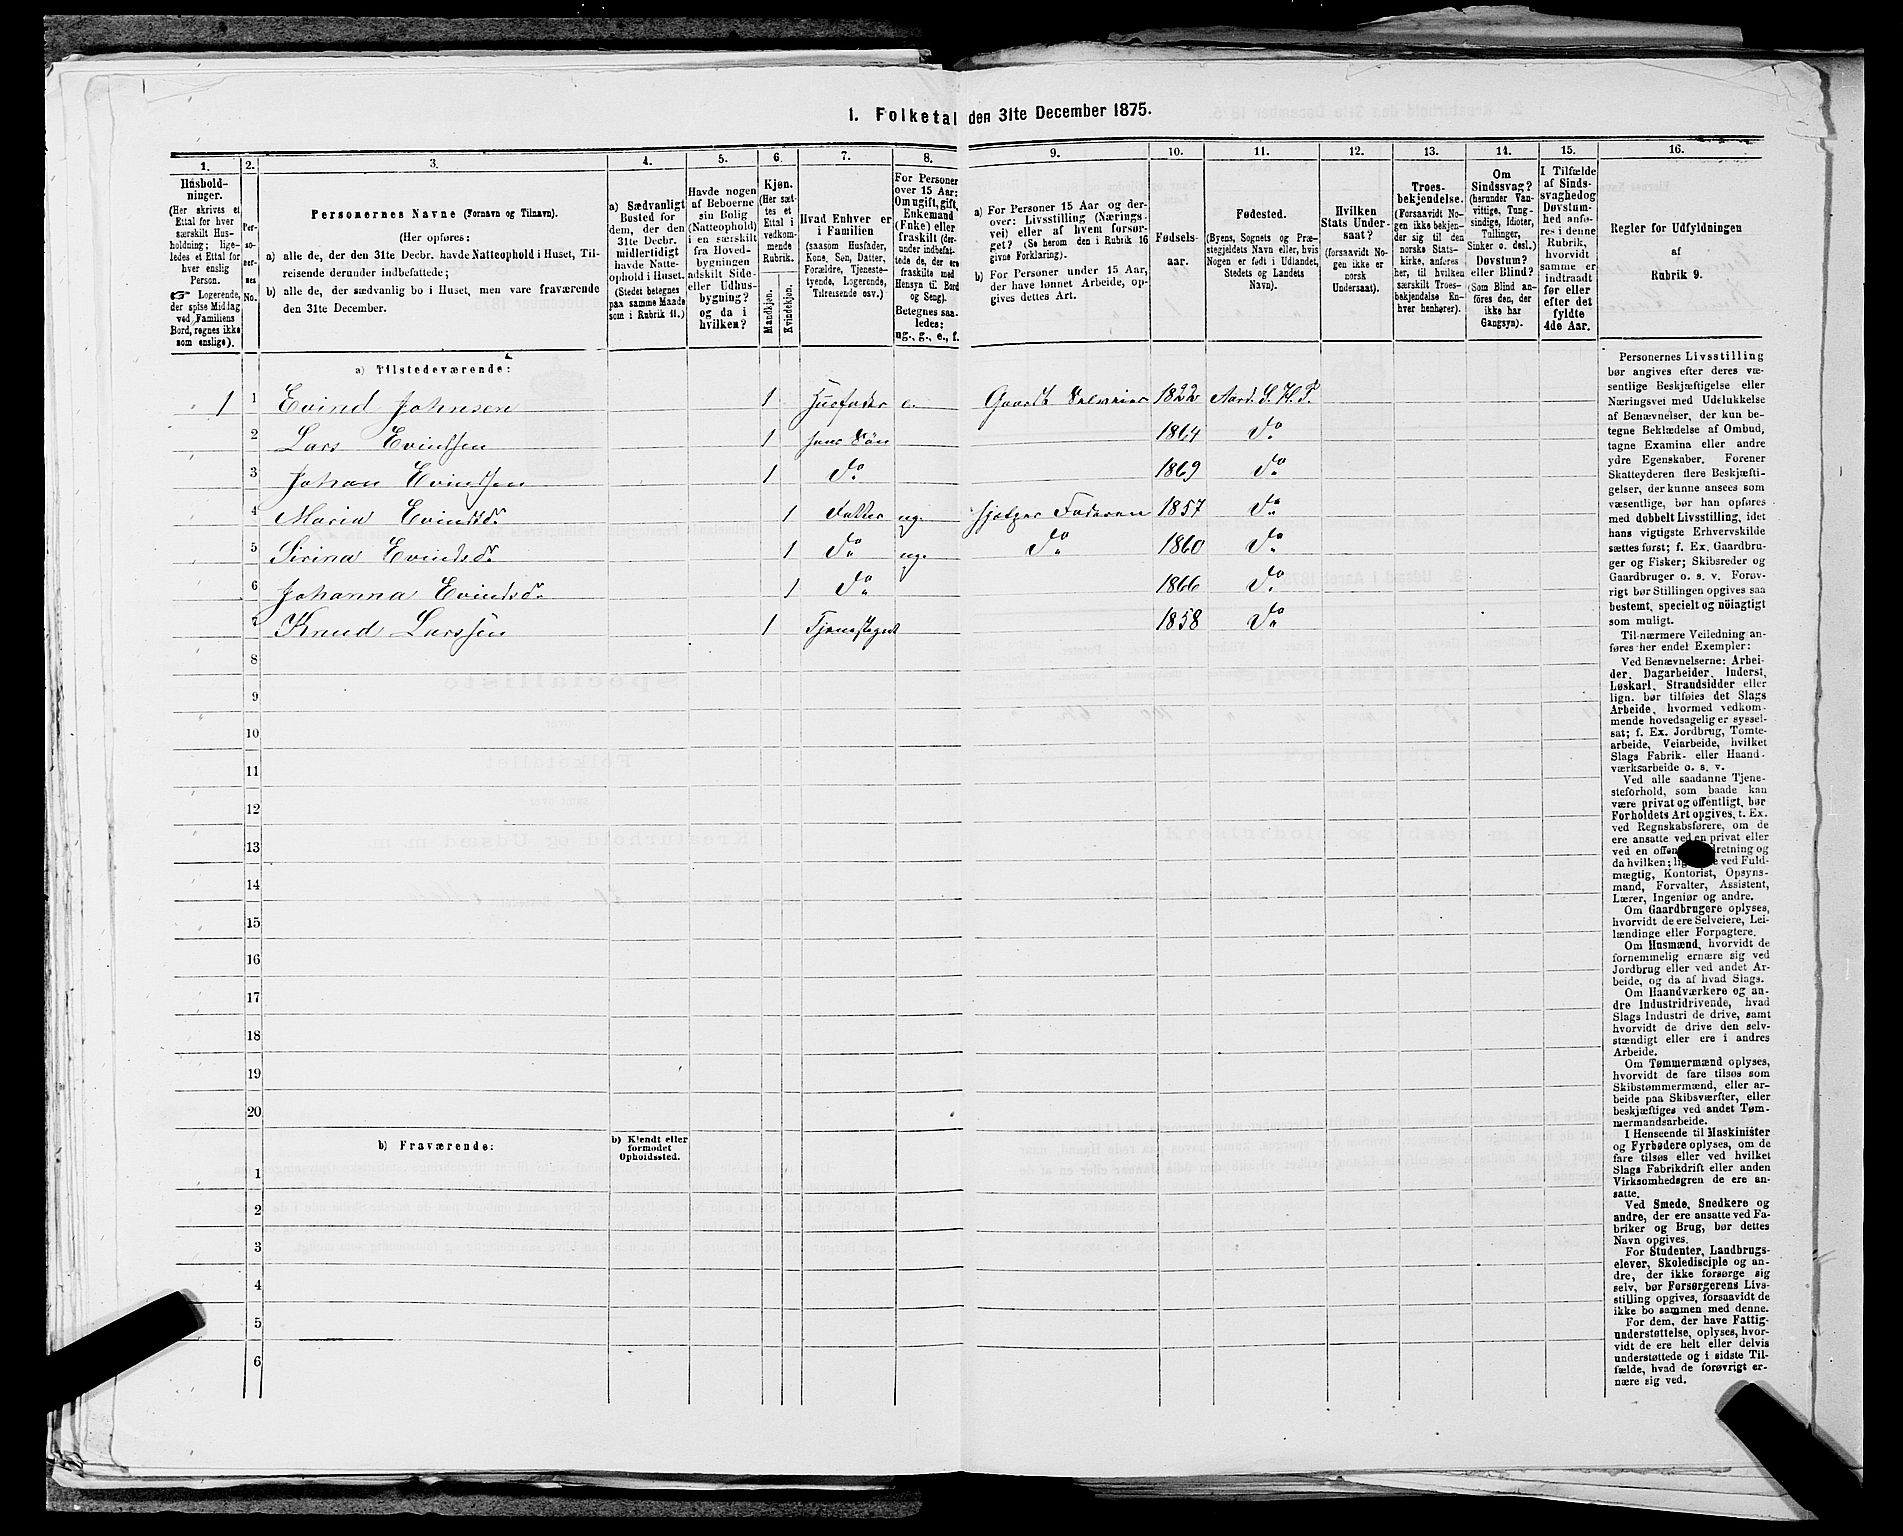 1. Folketal den 31te December 1875.
1. 2. 3. 4. 5. 6. 7. 8. 9. 10. 11. 12. 13. 14. 15. 16.
Husholdninger.
(Her skrives et
Ettal for hver
særskilt Husholdning; ligeledes et Ettal for
hver enslig
Person.
☞ Logerende,
der spise Middag
ved Familiens
Bord, regnes ikke
som enslige).
Personernes No.
Personernes Navne (Fornavn og Tilnavn).
(Her opføres:
a) alle de, der den 31te Decbr. havde Natteophold i Huset, Tilreisende derunder indbefattede;
b) alle de, der sædvanlig bo i Huset, men vare fraværende
den 31te December.
a) Sædvanligt
Bosted for
dem, der den
31te Decbr.
midlertidigt
havde Natteophold i Huset.
(Stedet betegnes
paa samme Maade
som i Rubrik 11.)
Havde nogen
af Beboerne
sin Bolig
(Natteophold)
i en særskilt
fra Hovedbygningen
adskilt Side- eller Udhusbygning?
og da i
hvilken?
Kjøn.
(Her sættes et
Ettal i
vedkommende
Rubrik.
Mandkjøn.
Kvindekjøn.
Hvad Enhver er
i Familien
(saasom Husfader,
Kone, Søn, Datter,
Forældre, Tjenestetyende, Logerende,
Tilreisende osv.)
For Personer
over 15 Aar:
Om ugift, gift,
Enkemand
(Enke) eller
fraskilt (derunder indbefattede de, der ere
fraskilte med
Hensyn til Bord
og Seng).
Betegnes saaledes:
ug., g., e., f.
a) For Personer 15 Aar og derover: Livsstilling (Næringsvei) eller af hvem forsørget? (Se herom den i Rubrik 16
givne Forklaring).
b) For Personer under 15 Aar,
der have lønnet Arbeide, opgives dettes Art.
Fødselsaar.
Fødested.
(Byens, Sognets og Præstegjeldets Navn eller, hvis
Nogen er født i Udlandet,
Stedets og Landets
Navn).
Hvilken
Stats Undersaat?
(forsaavidt Nogen ikke er
norsk
Undersaat).
Troesbekjendelse.
(Forsaavidt Nogen ikke bekjender sig til den
norske Statskirke, anføres
her, til hvilken
særskilt Troesbekjendelse Enhver henhører).
Om
Sindssvag?
(herunder Vanvittige, Tungsindige, Idioter,
Tullinger,
Sinker o. desl.)
Døvstum?
eller Blind?
(Som Blind anføres den, der
ikke har
Gangsyn).
I Tilfælde
af Sindssvaghed og
Døvstumhed anføres i denne
Rubrik,
hvorvidt
samme er
indtraadt
før eller
efter det
fyldte
4de Aar.
Regler for Udfyldningen
af
Rubrik 9.
a) Tilstedeværende:
1 1 Evind Johnsen 1 Husfader e. Gaardb Selveier 1822 Aard. S. H. P.
2 Lars Evindsen 1 hans Søn 1864 Do
3 Johan Evindsen 1 Do 1869 Do
4 Maria Evindsdr 1 Datter ug. hjelper Faderen 1857 Do
5 Sirina Evindsdr 1 Do ug. Do 1860 Do
6 Johanna Evindsdr 1 Do 1866 Do
7 Knud Larssen 1 1858 Do
8
9
10
11
12
13
14
15
16
17
18
19
20
b) Fraværende:
b) Kjendt eller
formodet
Opholdssted.
1
2
3
4
5
6
Personernes Livsstilling
bør angives efter deres væsentlige Beskjæftigelse eller
Næringsvei med Udelukkelse
af Benævnelser, der kun betegne Beklædelse af Ombud,
tagne Examina eller andre
ydre Egenskaber. Forener
Skatteyderen flere Beskjæftigelser, der kunne ansees som
væsentlige, bør han opføres
med dobbelt Livsstilling, idet
hans vigtigste Erhvervskilde
sættes først; f. Ex. Gaardbruger og Fisker; Skibsreder og
Gaardbruger o. s. v. Forøvrigt bør Stillingen opgives saa
bestemt, specielt og nøiagtigt
som muligt.
Til nærmere Veiledning anføres her endel Exempler:
Ved Benævnelserne: Arbeider, Dagarbeider, Inderst,
Løskarl, Strandsidder eller
lign. bør tilføies det Slags
Arbeide, hvormed vedkommende hovedsagelig er sysselsat; f. Ex. Jordbrug, Tomtearbeide, Veiarbeide, hvilket
Slags Fabrik- eller Haandværksarbeide o. s. v.
Ved alle saadanne Tjenesteforhold, som baade kan
være privat og offentligt, bør
Forholdets Art opgives, t. Ex.
ved Regnskabsførere, om de
ere ansatte ved en privat eller
ved en
da hvilken; ved Fuldmægtig, Kontorist, Opsynsmand, Forvalter, Assistent,
Lærer, Ingeniør og andre.
Om Gaardbrugere oplyses,
hvorvidt de ere Selveiere, Leilændinge eller Forpagtere.
Om Husmænd, hvorvidt de
fornemmelig ernære sig ved
Jordbrug eller ved andet Arbeide, og da af hvad Slags.
Om Haandværkere og andre Industridrivende, hvad
Slags Industri de drive, samt
hvorvidt de drive den selvstændigt eller ere i andres
Arbeide.
Om Tømmermænd oplyses,
hvorvidt de fare tilsøs som
Skibstømmermænd, eller arbeide paa Skibsværfter, eller
beskjæftiges ved andet Tømmermandsarbeide.
I Henseende til Maskinister
og Fyrbødere oplyses, om de
fare tilsøs eller ved hvilket
Slags Fabrikdrift eller anden
Virksomhedsgren de ere ansatte.
Ved Smede, Snedkere og
andre, der ere ansatte ved Fabriker og Brug, bør dettes
Navn opgives.
For Studenter, Landbrugselever, Skoledisciple og andre, der ikke forsørge sig
selv, bør Forsørgerens Livsstilling opgives, forsaavidt de
ikke bo sammen med denne.
For dem, der have Fattigunderstøttelse, oplyses, hvorvidt de ere helt eller delvis
understøttede og i sidste Tilfælde, hvad de forøvrigt ernære sig ved.